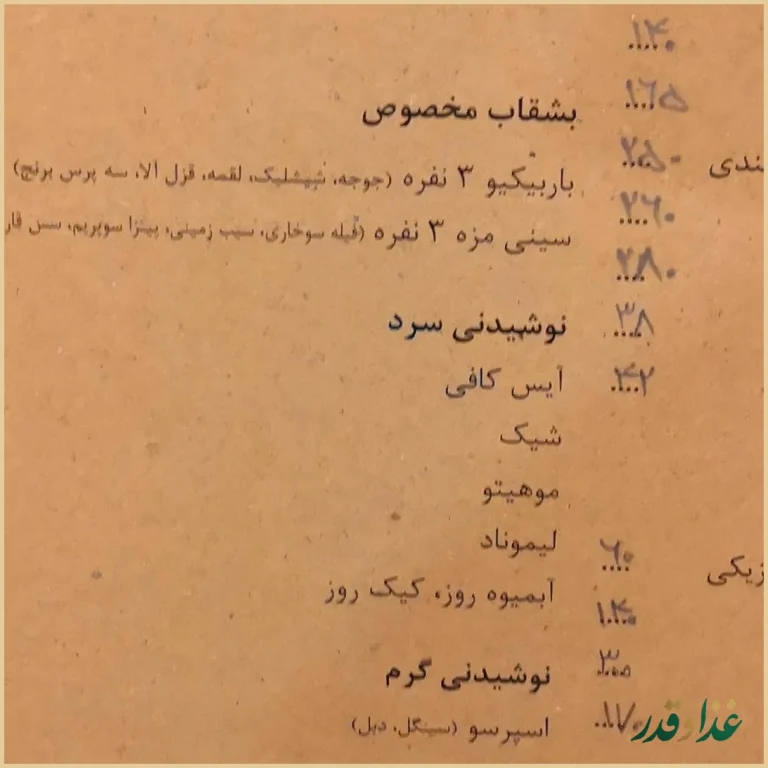 ۱۴۰
۱۶۵
بشقاب مخصوص
۲۵۰
ندی
باربیکیو ۳ نفره (جوجه، شیشلیک، لقمه، قزل آلا، سه پرس برنج)
۲۶۰
سینی مزه ۳ نفره (فیله سوخاری، سیب زمینی، پیتزا سوپریم، سس قار
۲۸۰
نوشیدنی سرد
۳۸
آیس کافی
۴۲
شیک
موهیتو
لیموناد
۶۰
زیکی
آبمیوه روز، کیک روز
۱۴۰
نوشیدنی گرم
۳۰
اسپرسو (سینگل، دبل)
۱۷۰
غذا و قدر